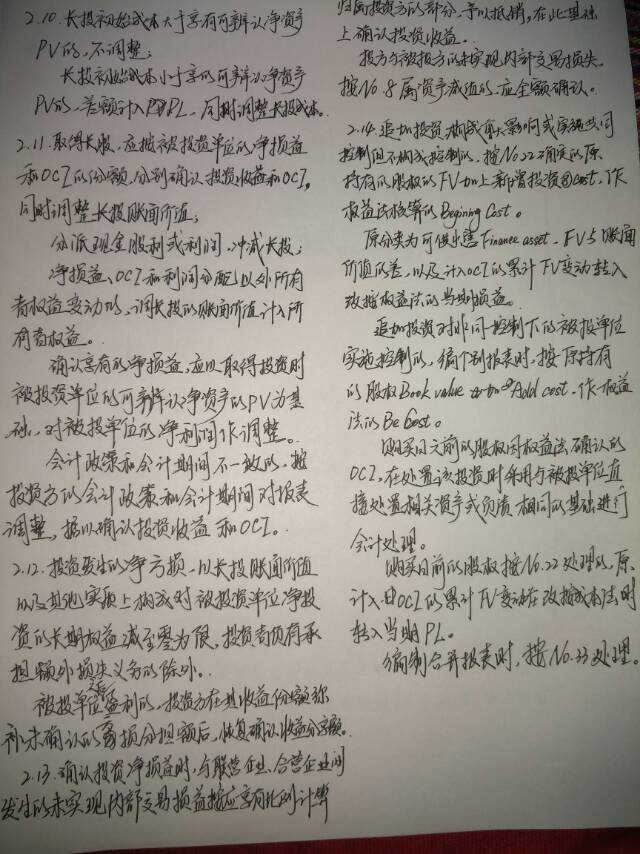 2.10. 长投初始成本大于享有可辨认净资产
PV的，不调整；
长投初始成本小于享的可辨认净资产
PV的，差额计入PL，同时调整长投成本。
2.11. 取得长股，应按被投资单位的净损益
和OCI的份额，分别确认投资收益和OCI。
同时调整长投账面价值；
分派现金股利或利润，冲减长投；
净损益、OCI和利润分配以外所有
者权益变动的，调长投的账面价值计入所
有者权益。
确认享有的净损益，应以取得投资时
被投资单位的可辨认净资产的PV为基
础，对被投单位的净利润作调整。
会计政策和会计期间不一致的，按
投资方的会计政策和会计期间对报表
调整，据以确认投资收益和OCI。
2.12. 投资发生的净亏损，以长投账面价值
以及其他实质上构成对被投资单位净投
资的长期权益减至零为限，投资者负有承
担额外损失义务的除外。
被投单位之后盈利的，投资方在其收益份额弥
补未确认的亏损分担额后，恢复确认收益分享额。
2.13. 确认投资净损益时，与联营企业、合营企业间
发生的未实现内部交易损益按应享有比例计算
归属投资方的部分，予以抵销，在此基础
上确认投资收益。
投方与被投方的未实现内部交易损失，
按No 8 属资产减值的，应全额确认。
2.14. 追加投资，构成有大影响或实施共同
控制但不构成控制的，按No.22确定的原
持有的股权的FV加上新增投资cost，作
权益法核算的Begining Cost。
原分类为可供出售Finance asset，FV与账面
价值的差，以及计入OCI的累计FV变动转入
改按权益法的当期损益。
追加投资对非同一控制下的被投单位
实施控制的，编个别报表时，按原持有
的股权Book value 加 Add cost，作权益
法的Be Cost。
购买日之前的股权因权益法确认的
OCI，在处置该投资时采用与被投单位直
接处置相关资产或负债相同的基础进行
会计处理。
购买日前的股权按No.22处理的，原
计入OCI的累计FV变动在改按成本法时
转入当期PL。
编制合并报表时，按No.33处理。